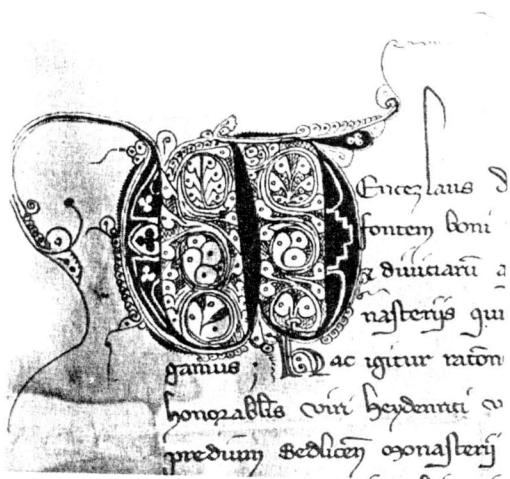 WEncezlaus d
fontem boni
& diuiciarū a
nasterijs qui
gamus ; Hac igitur ratōn
honorablīs viri heydenrici v
predium Sedlicen̄ monasterij